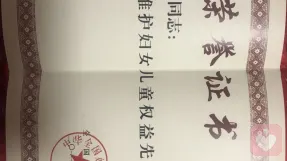 荣誉证书
同志：
维护妇女儿童权益先